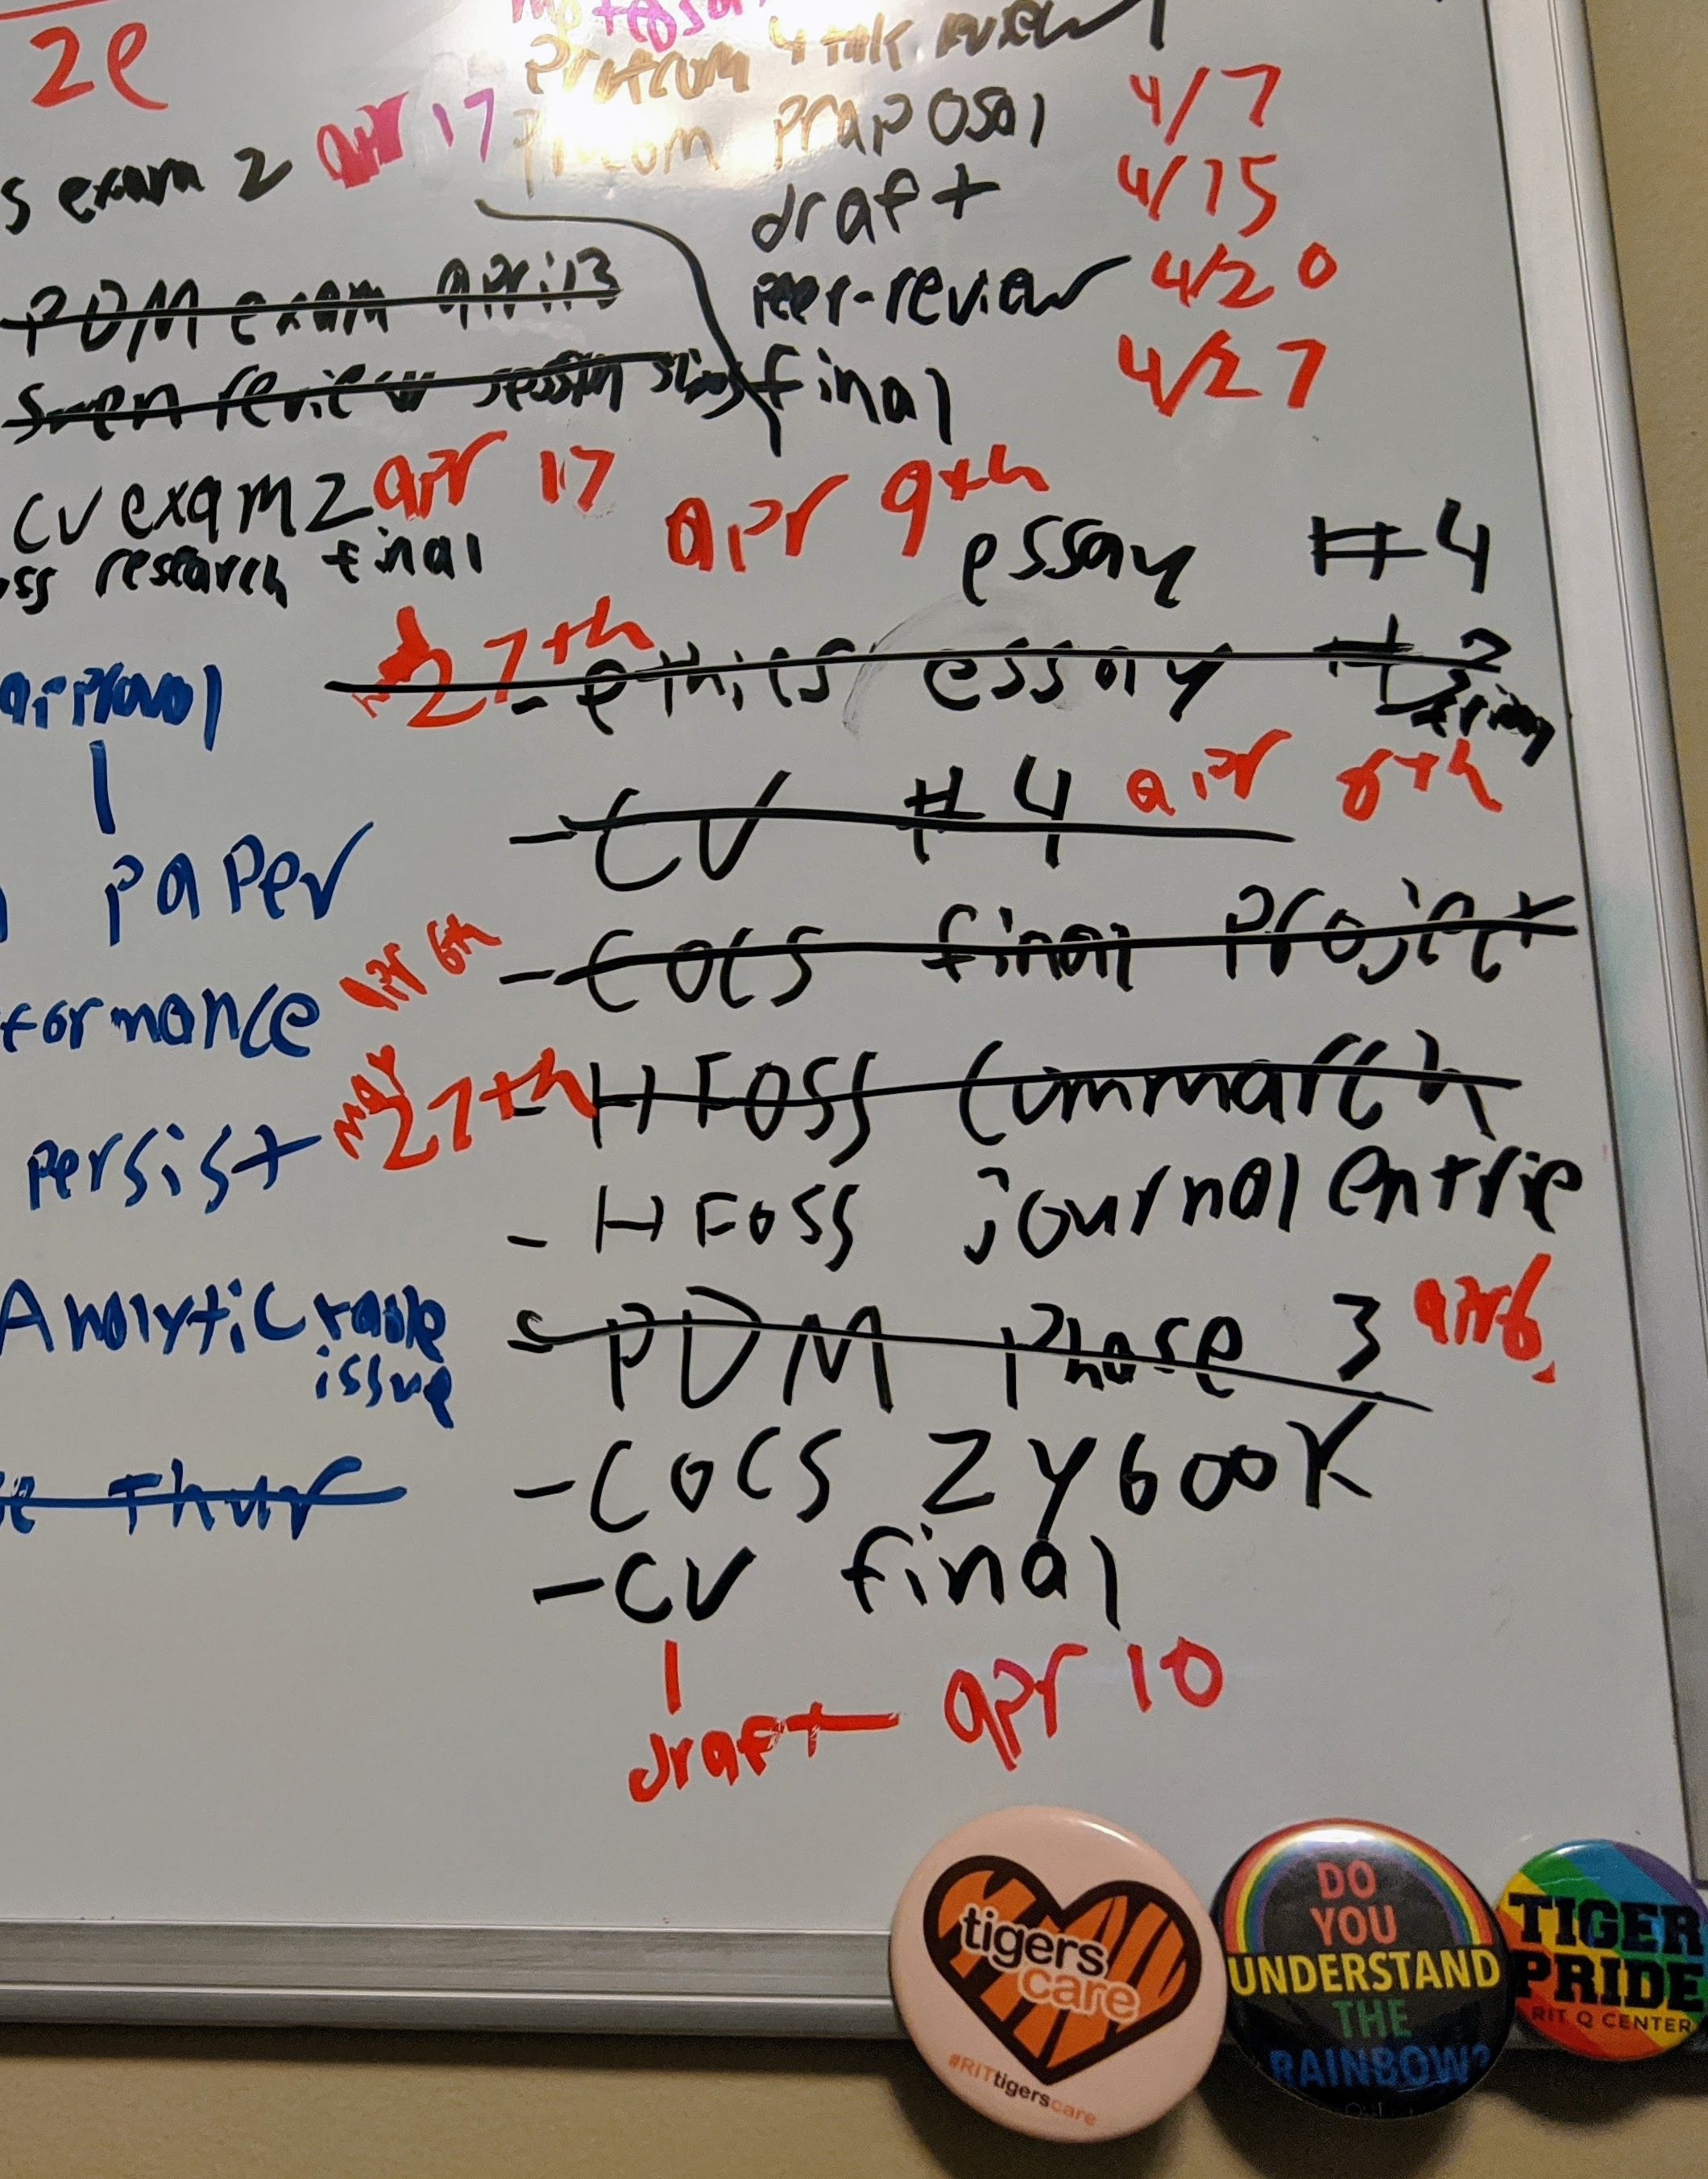 2e
4 talk review
proposal 4/7
s exam 2 apr 17
draft 4/15
PDM exam april 3
peer-review 4/20
review session
final 4/27
CV exam 2 apr 17
apr 9th
essay #4
oss research final
27th - ethics essay #
approval
- CV #4 apr 6th
paper
- COCS final project
apr 6th
formance
may 27th - HFOSS Commarch
persist
- HFOSS journal entrie
Analytic table
issue
- PDM Phase 3 apr 6
- COCS ZYBOOK
thur
- CV final
draft - apr 10
tigers
care
#RITtigerscare
DO
YOU
UNDERSTAND
THE
RAINBOW?
TIGER
PRIDE
RIT Q CENTER